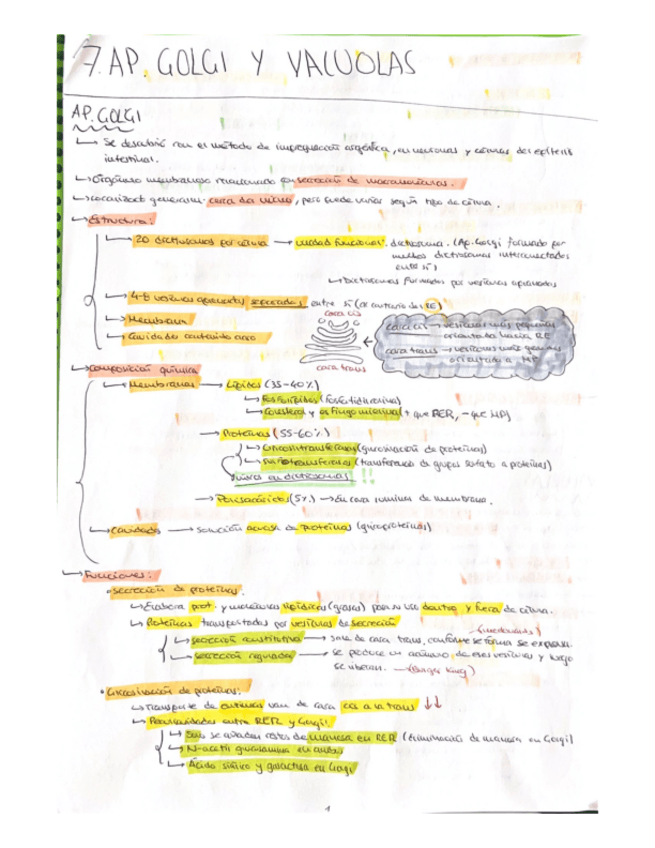 7. AP. GOLGI Y VACUOLAS
AP. GOLGI
Se descubrió con el método de impregnación argéntica, en neuronas y células del epitelio
intestinal.
Orgánulo membranoso relacionado con secreción de macromoléculas.
Localizado general. cerca del núcleo, pero puede variar según tipo de célula.
Estructura:
20 dictiosomas por célula → unidad funcional: dictiosoma. (Ap. Golgi formado por
muchos dictiosomas interconectados
entre sí)
Dictiosomas formados por vesículas aplanadas
4-8 vesículas aplanadas separadas entre sí (al contrario del RE)
Membrana
Cavidad o contenido
cara cis
cara trans
cara cis → vesículas más pequeñas
orientada hacia RE
cara trans → vesículas más grandes
orientada a MP
Composición química
Membranas → Lípidos (35-40%)
Fosfolípidos (fosfatidilcolina)
Colesterol y esfingomielina (+ que RER, - que MP)
→ Proteínas (55-60%)
Glicosiltransferasas (glicosilación de proteínas)
Sulfotransferasas (transferencia de grupos sulfato a proteínas)
únicas en dictiosomas
→ Polisacáridos (5%) → En cara luminal de membrana.
Cavidades → solución acuosa de proteínas (glicoproteínas)
Funciones:
• Secreción de proteínas.
Elabora prot. y moléculas lipídicas (grasas) para su uso dentro y fuera de célula.
Proteínas transportadas por vesículas de secreción
secreción constitutiva → sale de cara trans, conforme se forma se expulsa.
secreción regulada → se produce un acúmulo de esas vesículas y luego
se liberan. (Burger King)
• Glicosilación de proteínas:
Transporte de van de cara cis a la trans ↓↓
Peculiaridades entre RER y Golgi.
Solo se añaden restos de manosa en RER (eliminación de manosa en Golgi)
N-acetil glucosamina en ambos
Ácido siálico y galactosa en Golgi
1